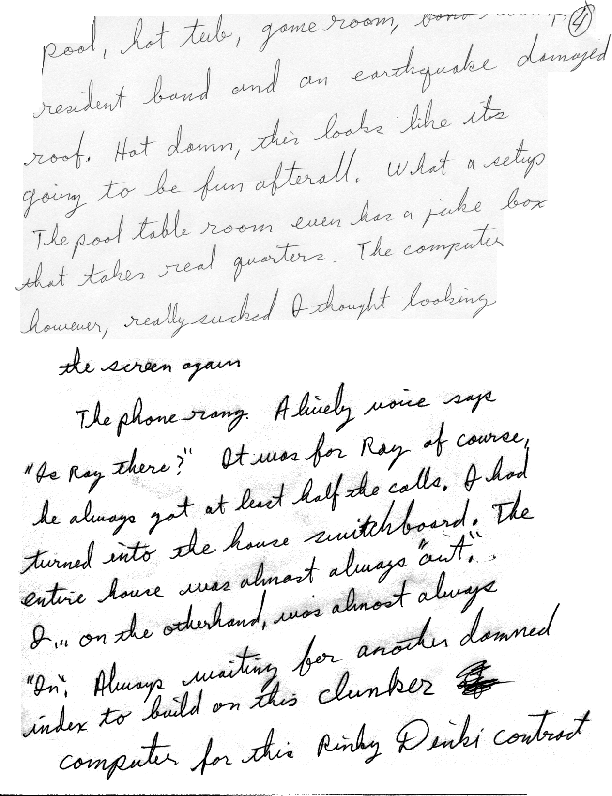 ④
pool, hot tub, game room,
resident band and an earthquake damaged
roof. Hot damn, this looks like its
going to be fun afterall. What a setup
The pool table room even has a juke box
that takes real quarters. The computer
however, really sucked I thought looking
the screen again
The phone rang. A lively voice says
"Is Ray there?" It was for Ray of course,
he always got at least half the calls. I had
turned into the house switchboard. The
entire house was almost always "out".
I... on the otherhand, was almost always
"In". Always waiting for another damned
index to build on this clunker
computer for this Rinky Dinki contract